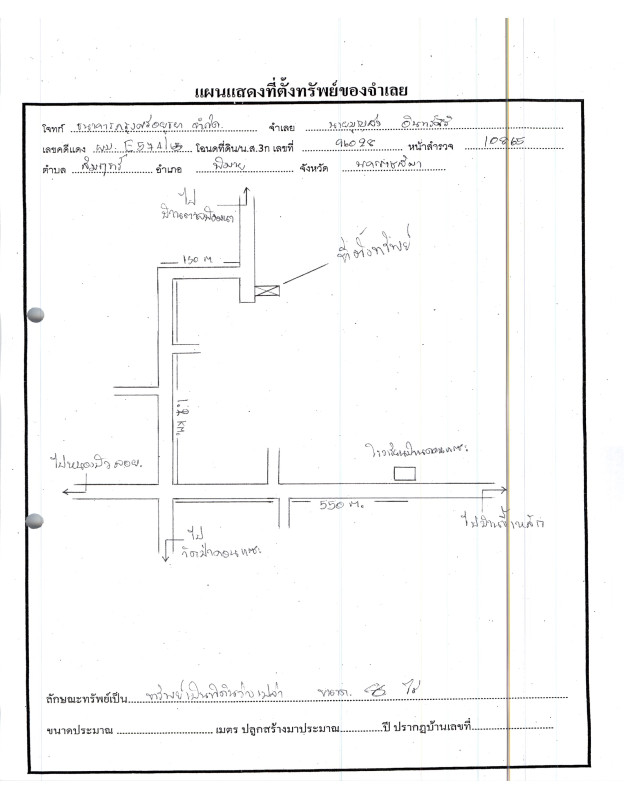 แผนแสดงที่ตั้งทรัพย์ของจำเลย
โจทก์ ธนาคารกรุงศรีอยุธยา จำกัด จำเลย นายบุญส่ง
เลขคดีแดง ผบ. E574/ โฉนดที่ดิน/น.ส.3ก เลขที่ 96098 หน้าสำรวจ 10865
ตำบล สัมฤทธิ์ อำเภอ พิมาย จังหวัด นครราชสีมา
ไป
150 M.
ที่ตั้งทรัพย์
1.2 KM.
ไปหนองบัวลอย.
โรงเรียนบ้านดอนแซะ
550 M.
ไปบ้านขี้เหล็ก
ไป
วัดป่าดอนแซะ
ลักษณะทรัพย์เป็น ทรัพย์เป็นที่ดินว่างเปล่า ขนาด 8 ไร่
ขนาดประมาณ เมตร ปลูกสร้างมาประมาณ ปี ปรากฏบ้านเลขที่